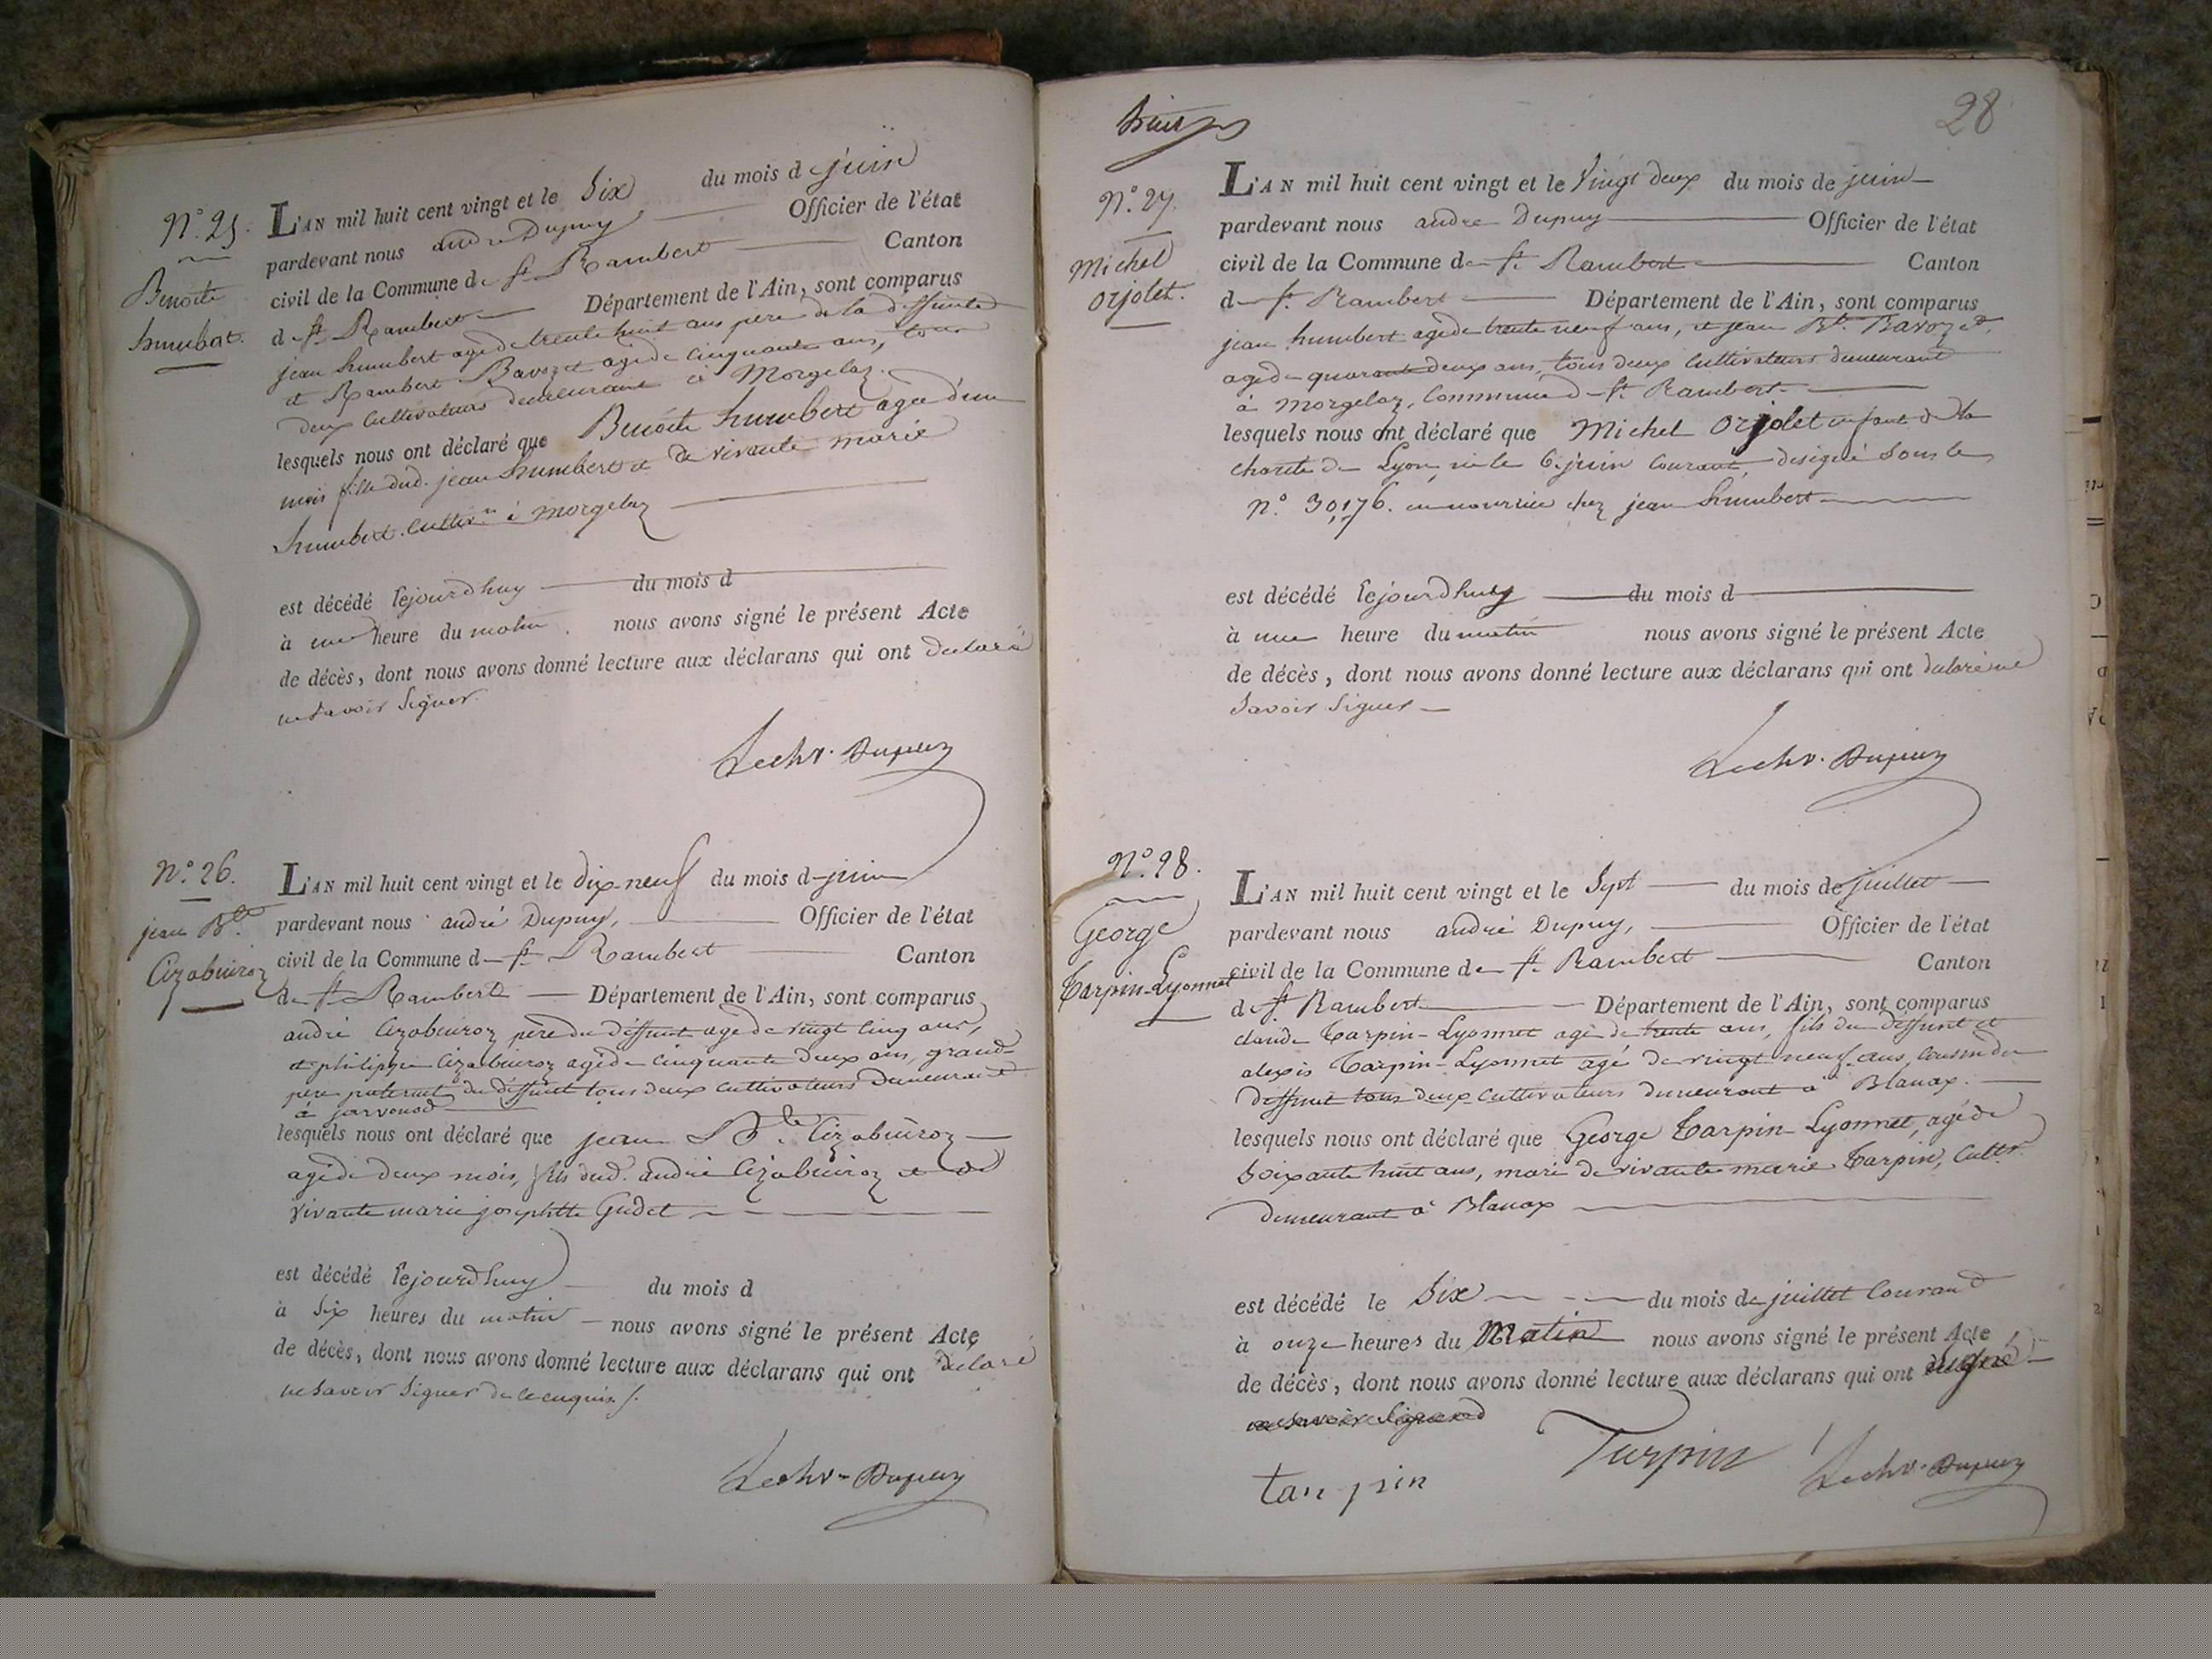 N.° 25.
Benoite
humbert.
L'AN mil huit cent vingt et le Six du mois d juin
pardevant nous andre Dupuy Officier de l'état
civil de la Commune de St. Rambert Canton
de St. Rambert Département de l'Ain, sont comparus
jean humbert agé de trente huit ans père de la deffunte
et Rambert Bavozet agé de cinquante ans, tous
deux cultivateurs demeurant à Morgelaz.
lesquels nous ont déclaré que Benoite humbert agée d'un
mois fille dud. jean humbert et de vivante marie
humbert. cultivrs à morgelaz
est décédé lejourdhuy du mois d
à une heure du matin. nous avons signé le présent Acte
de décès, dont nous avons donné lecture aux déclarans qui ont declaré
ne savoir signer.
Lechr. Dupuy
N.° 26.
jean Bte.
Cizabuiroz
L'AN mil huit cent vingt et le dix-neuf du mois d juin
pardevant nous andré Dupuy, Officier de l'état
civil de la Commune d St. Rambert Canton
de St. Rambert Département de l'Ain, sont comparus
andré Cizabuiroz père du deffunt agé de vingt cinq ans,
et philippe Cizabuiroz agé de cinquante deux ans, grand-
père paternel du deffunt tous deux cultivateurs demeurant
à javornod
lesquels nous ont déclaré que jean Bte. Cizabuiroz
agé de deux mois, fils dud. andré Cizabuiroz et de
vivante marie josephtte Gudet
est décédé lejourdhuy du mois d
à six heures du matin nous avons signé le présent Acte
de décès, dont nous avons donné lecture aux déclarans qui ont declaré
ne savoir signer de ce enquis.
Lechr. Dupuy
28
N.° 27.
Michel
orjolet.
L'AN mil huit cent vingt et le Vingt deux du mois de juin
pardevant nous andre Dupuy Officier de l'état
civil de la Commune de St. Rambert Canton
d St. Rambert Département de l'Ain, sont comparus
jean humbert agé de trente neuf ans, et jean Bte. Bavozet.
agé de quarante deux ans, tous deux cultivateurs demeurant
à Morgelaz, Commune d St. Rambert.
lesquels nous ont déclaré que Michel Orjolet enfant de la
charité de Lyon, né le 6. juin courant, designé sous le
n.° 30,176. en nourrice chez jean humbert
est décédé lejourdhuy du mois d
à une heure du matin nous avons signé le présent Acte
de décès, dont nous avons donné lecture aux déclarans qui ont declaré ne
savoir signer
Lechr. Dupuy
N.° 28.
George
Tarpin-Lyonnet
L'AN mil huit cent vingt et le Sept du mois de juillet
pardevant nous andré Dupuy, Officier de l'état
civil de la Commune de St. Rambert Canton
de St. Rambert Département de l'Ain, sont comparus
claude Tarpin-Lyonnet agé de trente ans, fils du deffunt et
alexis Tarpin-Lyonnet agé de vingt neuf ans, cousin du
deffunt tous deux cultivateurs demeurant à Blanaz.
lesquels nous ont déclaré que George Tarpin-Lyonnet, agé de
soixante huit ans, mari de vivante marie Tarpin, cultr.
demeurant à Blanaz
est décédé le Six du mois de juillet Courant
à onze heures du Matin nous avons signé le présent Acte
de décès, dont nous avons donné lecture aux déclarans qui ont signé
ne savoir signer
tarpin Turpin Lechr. Dupuy